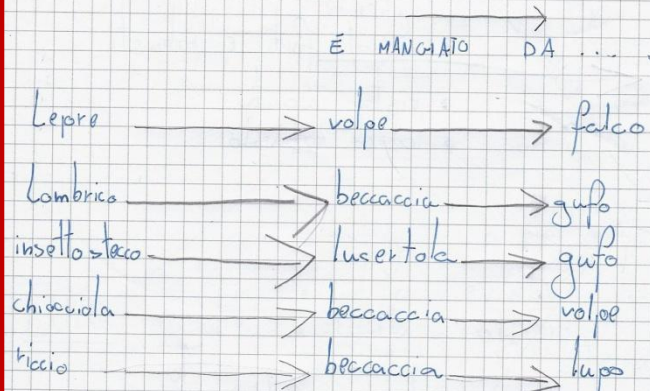 È MANGIATO DA ....
Lepre volpe falco
Lombrico beccaccia gufo
insetto stecco lusertola gufo
chiocciola beccaccia volpe
riccio beccaccia lupo